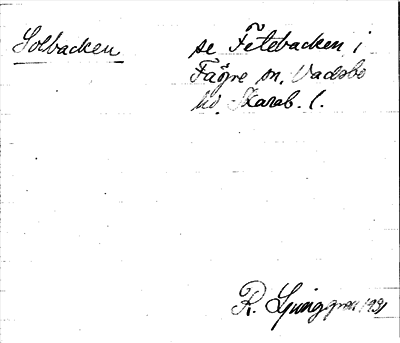 Solbacken
se Fetebacken i
Fägre sn. Vadsbo
hd. Skarab. l.
R. Ljunggren 1931